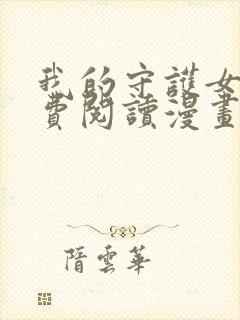 我的守護女
費閱讀漫畫
隋雲華